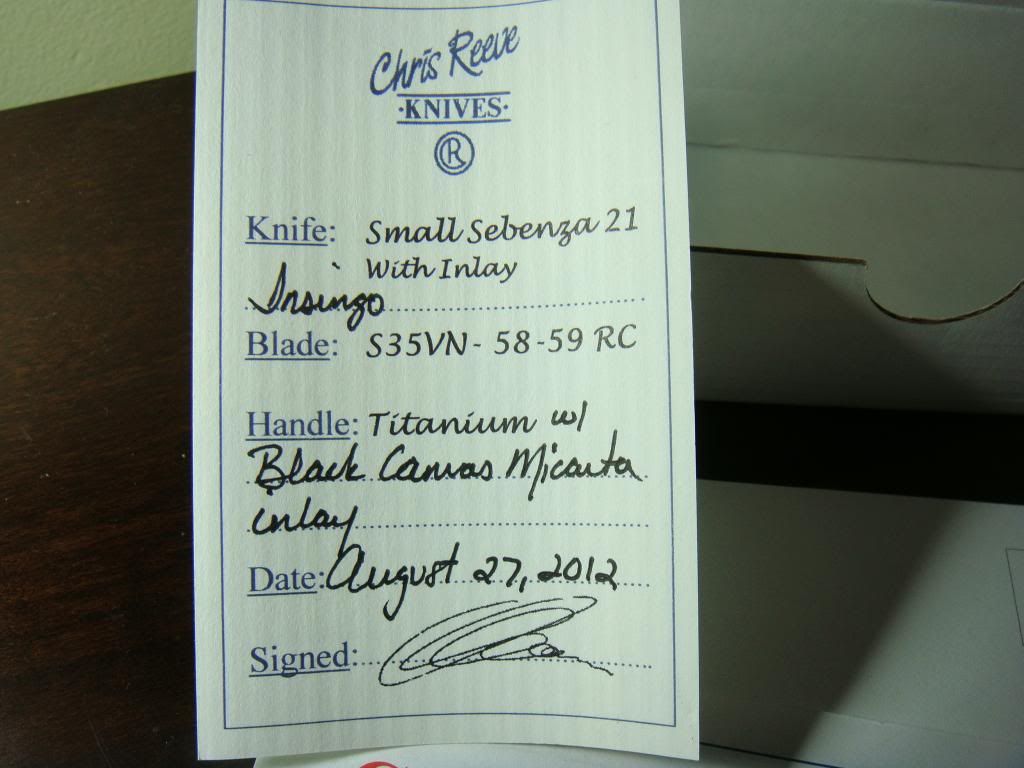 Chris Reeve
·KNIVES·
®
Knife: Small Sebenza 21
With Inlay
Insingo
Blade: S35VN- 58-59 RC
Handle: Titanium w/
Black Canvas Micarta
inlay
Date: August 27, 2012
Signed: